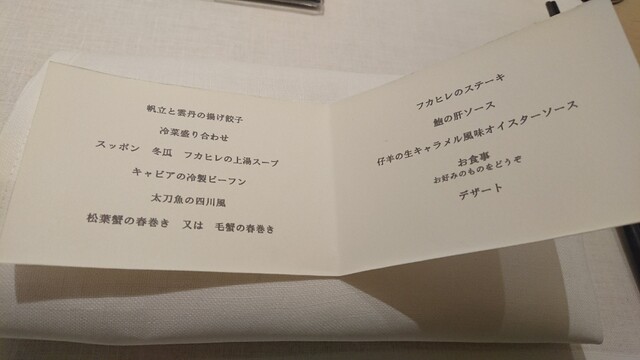 帆立と雲丹の揚げ餃子
冷菜盛り合わせ
スッポン 冬瓜 フカヒレの上湯スープ
キャビアの冷製ビーフン
太刀魚の四川風
松葉蟹の春巻き 又は 毛蟹の春巻き
フカヒレのステーキ
鮑の肝ソース
仔羊の生キャラメル風味オイスターソース
お食事
お好みのものをどうぞ
デザート